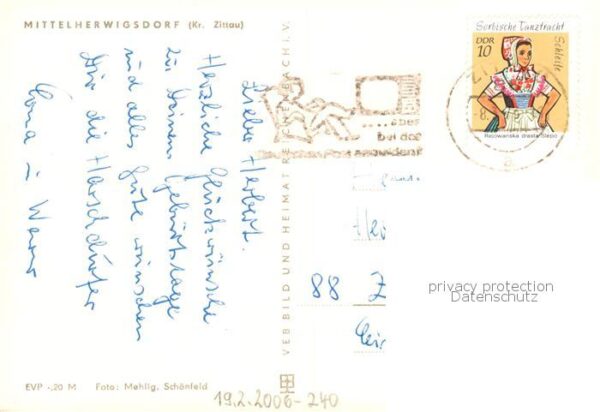 MITTELHERWIGSDORF (Kr. Zittau)
Lieber Herbert.
Herzliche Glückwünsche
zu Deinem Geburtstage
und alles Gute wünschen
Dir die Harschdorfer
Werner
VEB BILD UND HEIMAT REICHENBACH i. V.
Sorbische Tanztracht
Schleife
DDR
10
... aber
bei der
88 Z
privacy protection
Datenschutz
EVP -,20 M Foto: Mehlig, Schönfeld
19.2.2006-240